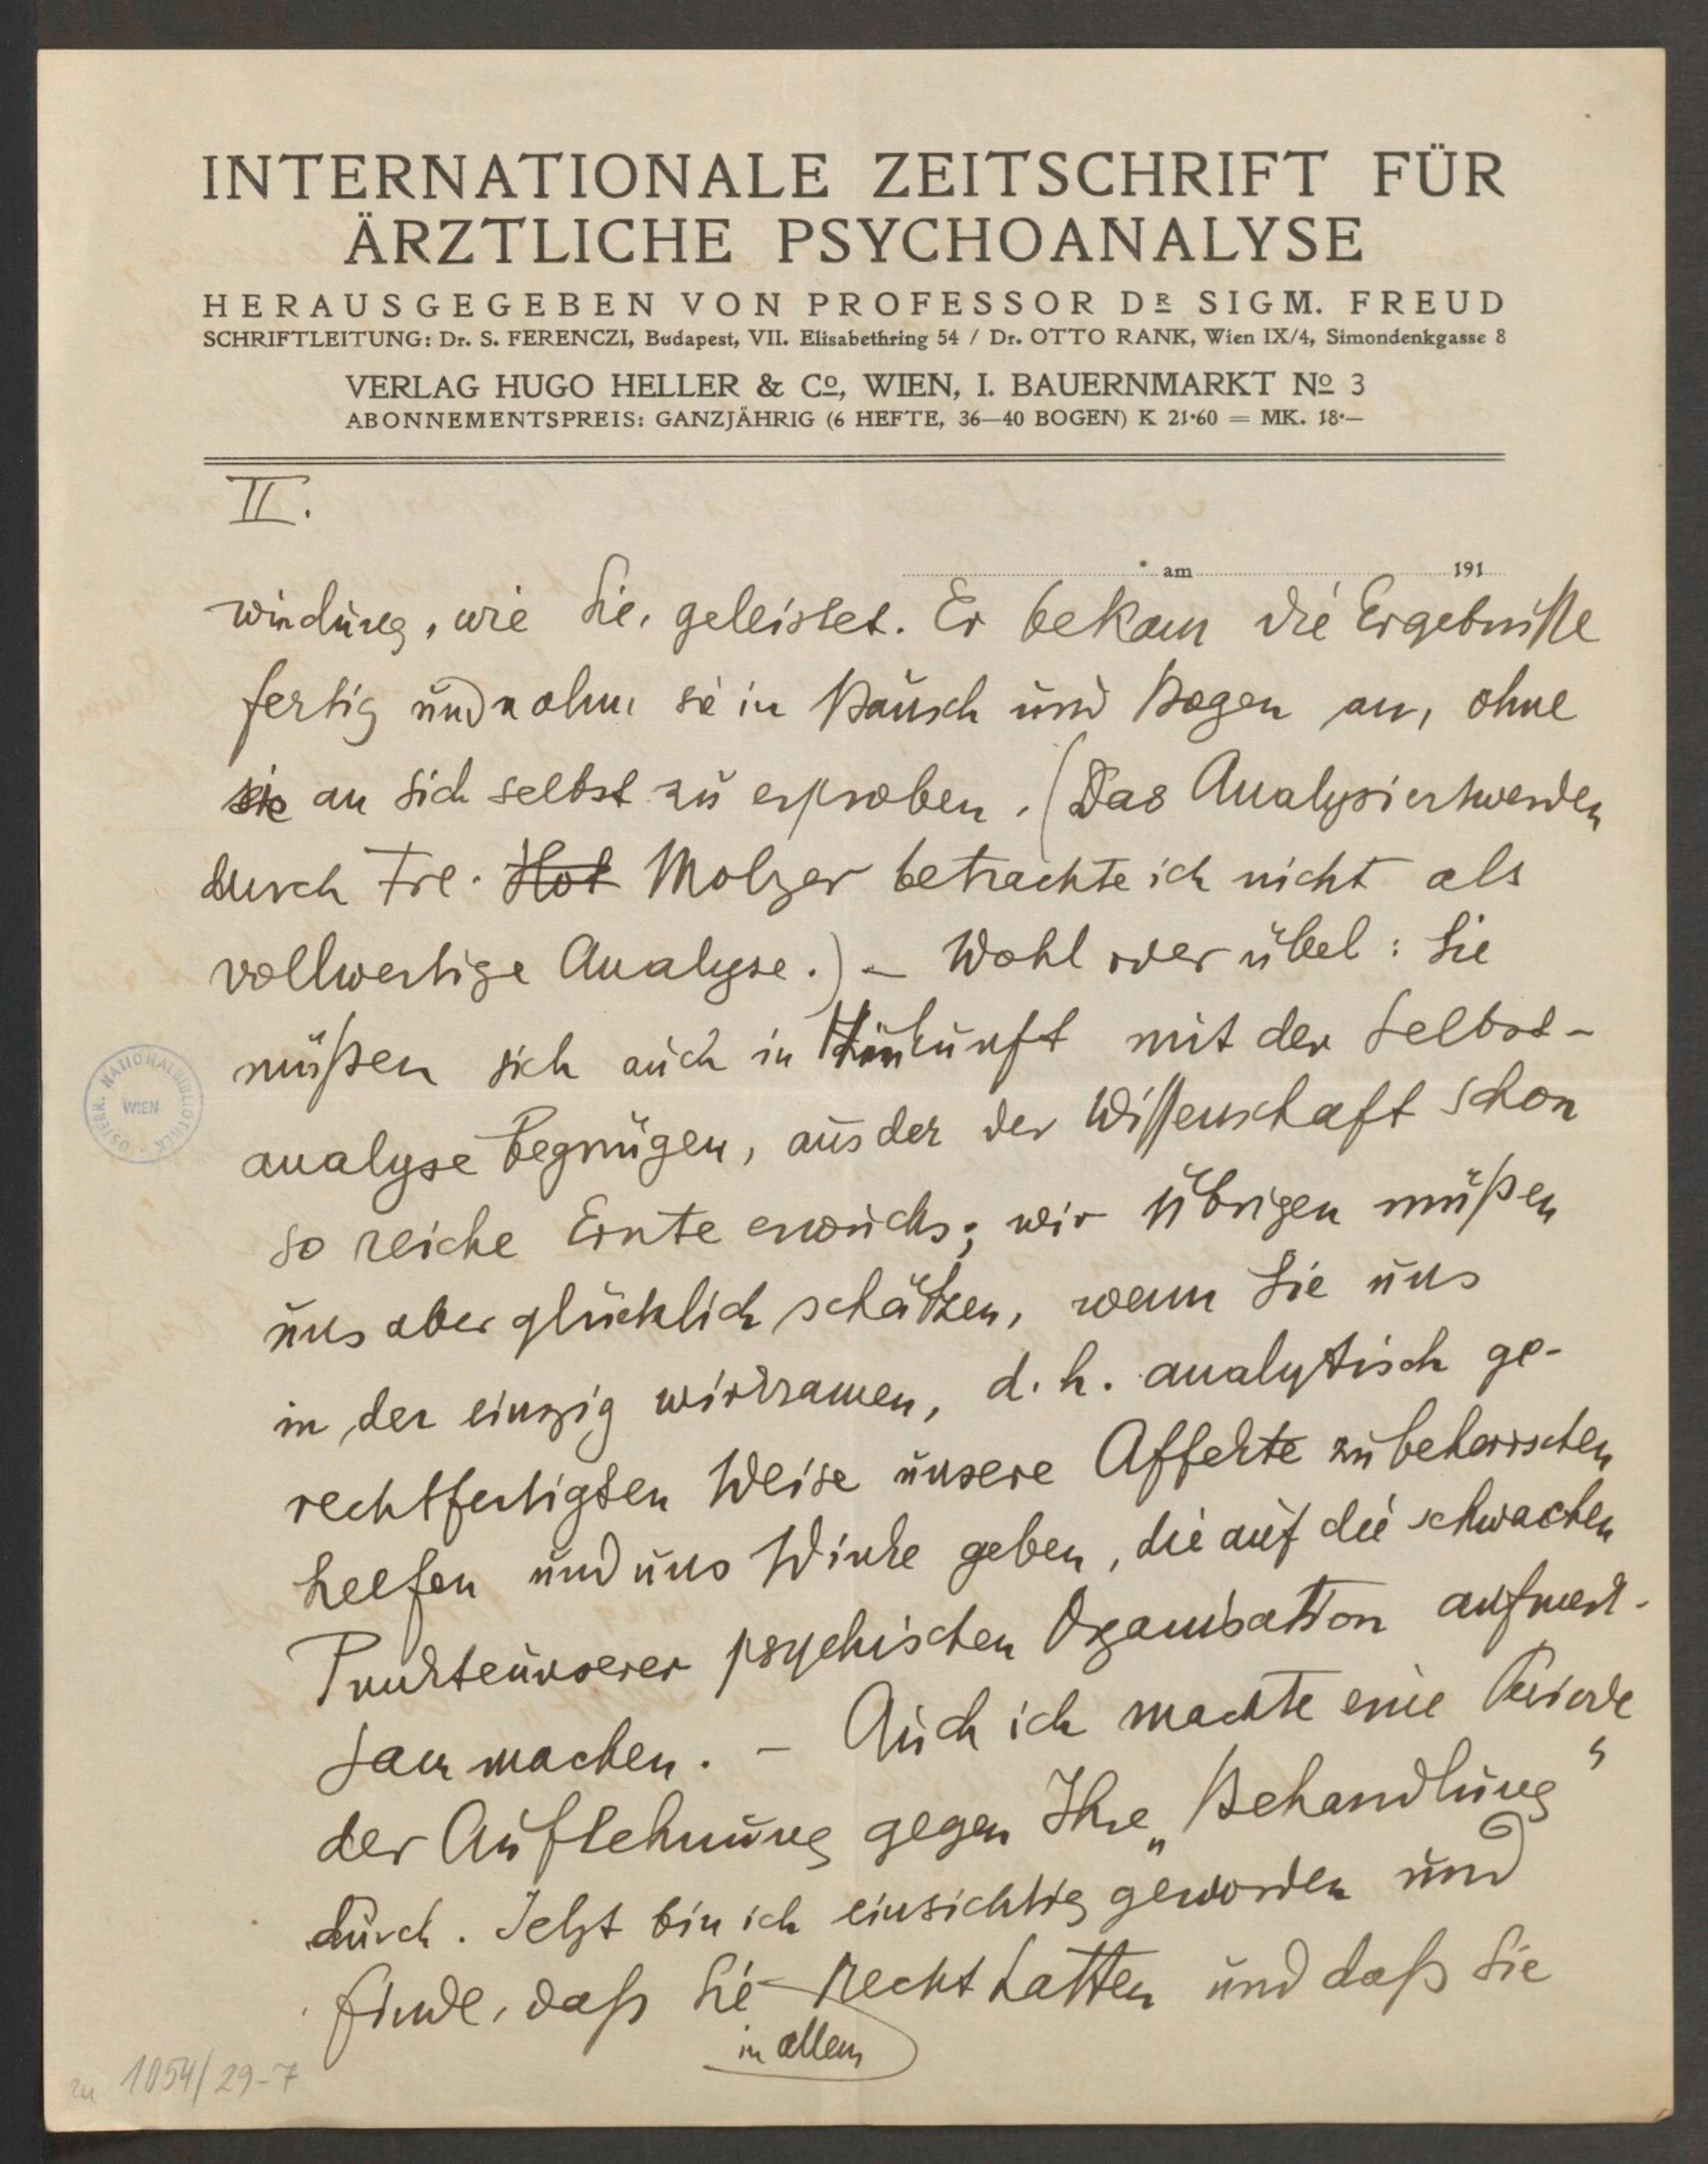 INTERNATIONALE ZEITSCHRIFT FÜR
ÄRZTLICHE PSYCHOANALYSE
HERAUSGEGEBEN VON PROFESSOR DR SIGM. FREUD
SCHRIFTLEITUNG: Dr. S. FERENCZI, Budapest, VII. Elisabethring 54 / Dr. OTTO RANK, Wien IX/4, Simondenkgasse 8
VERLAG HUGO HELLER & Co, WIEN, I. BAUERNMARKT No 3
ABONNEMENTSPREIS: GANZJÄHRIG (6 HEFTE, 36—40 BOGEN) K 21·60 = MK. 18·—
II.
am 191
windung, wie Sie, geleistet. Er bekam die Ergebniße
fertig und nahm sie in Bausch und Bogen an, ohne
sie an sich selbst zu erproben. (Das Analysiertwerden
durch Frl. Hot Molzer betrachte ich nicht als
vollwertige Analyse.) – Wohl oder übel: Sie
müßen sich auch in Zukunft mit der Selbst-
analyse begnügen, aus der der Wißenschaft schon
so reiche Ernte erwuchs; wir Übrigen müßen
uns aber glücklich schätzen, wenn Sie uns
in der einzig wirksamen, d. h. analytisch ge-
rechtfertigten Weise unsere Affekte zu beherrschen
helfen und uns Winke geben, die auf die schwachen
Punkte unserer psychischen Organisation aufmerk-
sam machen. – Auch ich machte eine Periode
der Auflehnung gegen Ihre „Behandlung“
durch. Jetzt bin ich einsichtig geworden und
finde, daß Sie Recht hatten und daß Sie
in allem
zu 1054/29-7
ÖSTERR. NATIONALBIBLIOTHEK
WIEN